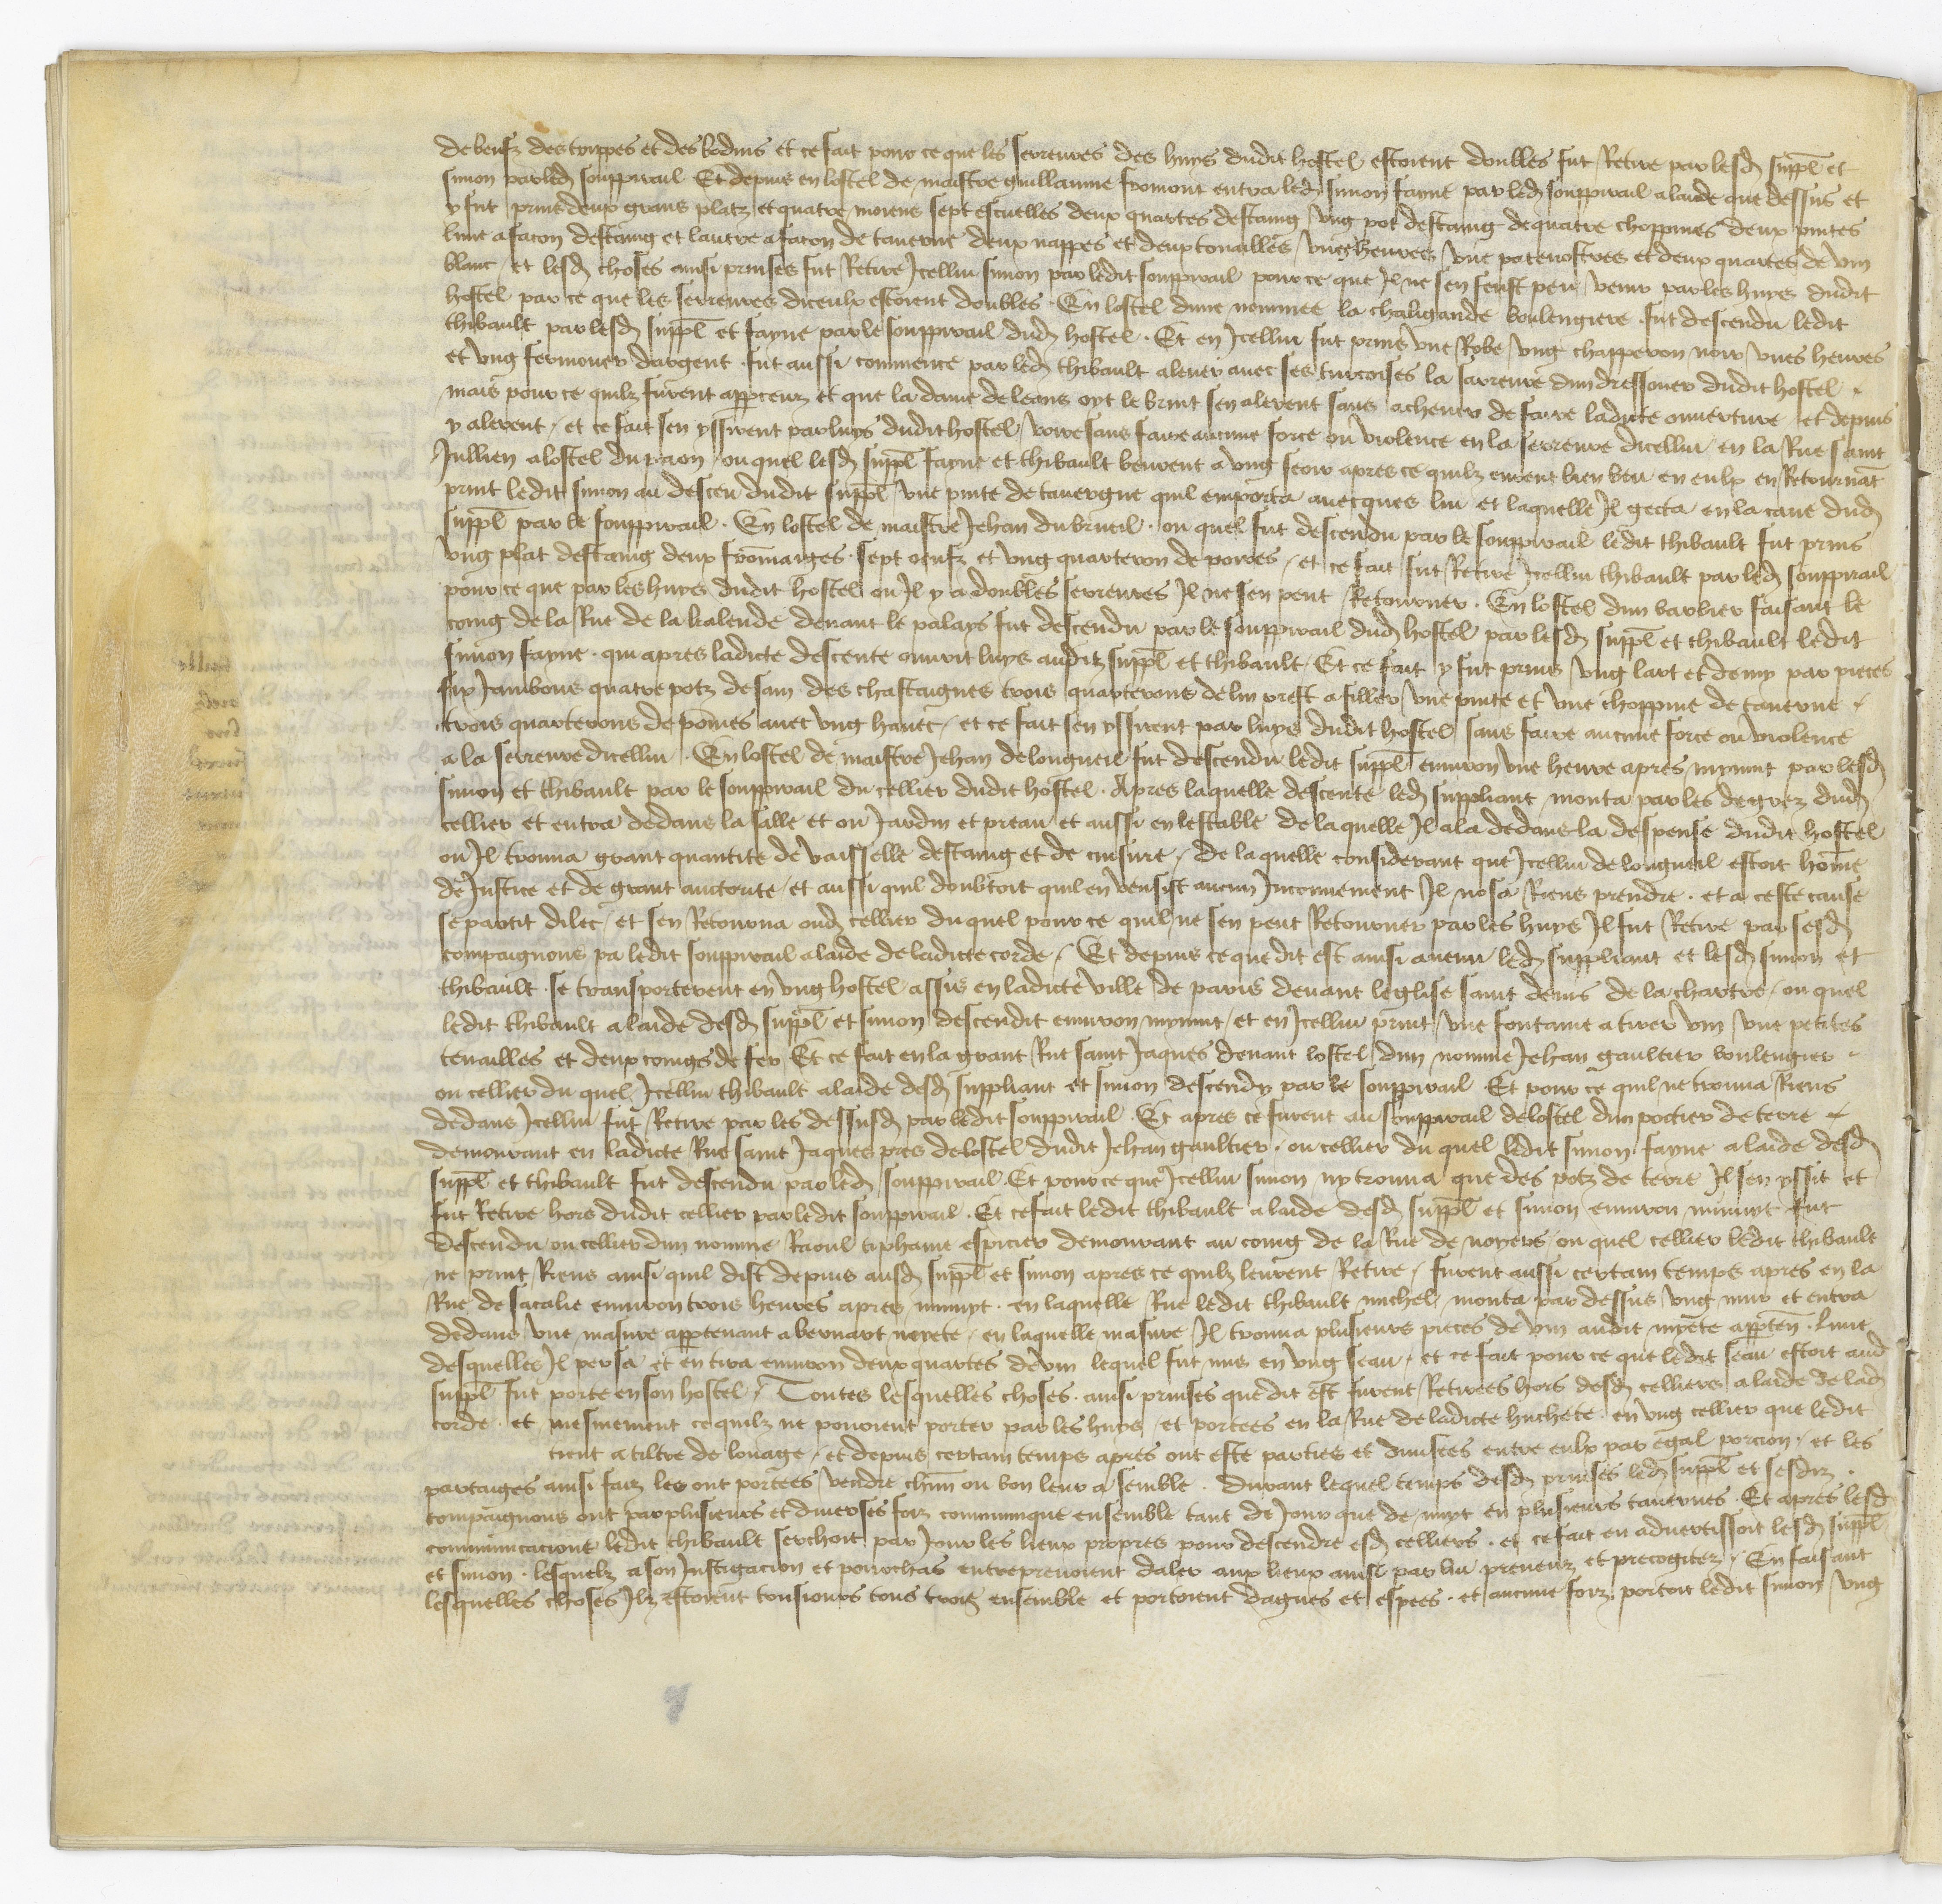 de beufz des trippes et des bodins et ce fait pour ce que les serreures des huys dudit hostel estoient doubles fut Retire par lesd suppl et
simon par led souppirail Et depuis en lostel de maistre guillaume fromont entra led simon fayne par led souppirail alaide que dessus et
y fut prins deux grans platz et quatre moiens sept escuelles deux quartes destaing vng pot destaing de quatre choppines deux pintes
lune a facon destaing et lautre a facon de tauerne deux nappes et deux touailles vnes heures vne patenostres et deux quartes de vin
blanc et lesd choses ainsi prinses fut Retire Icellui simon par ledit souppirail pour ce que Il ne sen feust peu venir par les huys dudit
hostel par ce que les serreures diceulx estoient doubles En lostel dune nommee la chaligande boulengiere fut descendu ledit
thibault par lesd suppl et fayne par le souppirail dud hostel Et en Icellui fut prins vne Robe vng chapperon noir vnes heures
et vng fermouer dargent fut aussi commence par led thibault a leuer auec ses turcoises la serreure dun dressouer dudit hostel
mais pour ce quilz furent apperceuz et que la dame de leans oyt le bruit sen alerent sans acheuer de faire ladicte ouuerture et depuis
y alerent et ce fait sen yssirent par luys dudit hostel voire sans faire aucune force ou violence en la serreure dicellui en la Rue saint
Jullien a lostel du paon ou quel lesd suppl fayne et thibault beurent a vng soir apres ce quilz eurent bien beu en eulx en Retournat
print ledit simon au desceu dudit suppl vne pinte de tauergne quil emporta auecques lui et laquelle Il gecta en la caue dud
suppl par le souppirail En lostel de maistre Jehan du brueil ou quel fut descendu par le souppirail ledit thibault fut prins
vng plat destaing deux fromaiges sept oeufz et vng quarteron de poires et ce fait fut Retire Icellui thibault par led souppirail
pour ce que par les huys dudit hostel ou Il y a doubles serreures Il ne sen peut Retourner En lostel dun barbier faisant le
coing de la Rue de la kalende deuant le palays fut descendu par le souppirail dud hostel par lesd suppl et thibault ledit
simon fayne qui apres ladicte descente ouurit luys ausditz suppl et thibault Et ce fait y fut prins vng lart et demy par pieces
six Jambons quatre potz de sain des chastaignes trois quarterons de lin prest a filler vne pinte et vne choppine de tauerne
trois quarterons de pomes auec vng hauec et ce fait sen yssirent par luys dudit hostel sans faire aucune force ou violence
a la serreure dicellui En lostel de maistre Jehan de longueil fut descendu ledit suppl enuiron vne heure apres mynuit par lesd
simon et thibault par le souppirail du cellier dudit hostel Apres laquelle descente led suppliant monta par les degrez dud
cellier et entra dedans la salle et ou Jardin et preau et aussi en lestable de laquelle Il ala dedans la despense dudit hostel
ou Il trouua grant quantite de vaisselle destaing et de cuisine de laquelle considerant que Icellui de longueil estoit home
de Justice et de grant auctorite et aussi quil doubtoit quil en vensist aucun Inconuenient Il nosa Riens prendre et a ceste cause
se partit dilec et sen Retourna oud cellier du quel pour ce quil ne sen peut Retourner par les huys Il fut Retire par sesd
compaignons pa ledit souppirail a laide de ladicte corde Et depuis ce que dit est ainsi auenu led suppliant et lesd simon et
thibault se transporterent en vng hostel assis en ladicte ville de paris deuant leglise saint denis de la chartre ou quel
ledit thibault a laide desd suppl et simon descendit enuiron mynuit et en Icellui print vne fontaine a tirer vin vne petites
tenailles et deux coings de fer Et ce fait en la grant Rue saint Jaques deuant lostel dun nomme Jehan gaultier boulengier
ou cellier du quel Icellui thibault a laide desd suppliant et simon descendy par le souppirail Et pour ce quil ne trouua Riens
dedans Icellui fut Retire par les dessusd par ledit souppirail Et apres ce furent au souppirail de lostel dun potier de terre
demourant en ladicte Rue saint Jaques pres de lostel dudit Jehan gaultier ou cellier du quel ledit simon fayne a laide desd
suppl et thibault fut descendu par led souppirail Et pour ce que Icellui simon ny trouua que des potz de terre Il sen yssit et
fut Retire hors dudit cellier par ledit souppirail Et ce fait ledit thibault a laide desd suppl et simon enuiron minuyt fut
descendu ou cellier dun nomme Raoul tiphaine espicier demourant au coing de la Rue de noyers ou quel cellier ledit thibault
ne print Riens ainsi quil dist depuis ausd suppl et simon apres ce quilz leurent Retire furent aussi certain temps apres en la
Rue de sacalie enuiron trois heures apres minuyt en laquelle Rue ledit thibault michel monta par dessus vng mur et entra
dedans vne masure appartenant a bernart nerete en laquelle masure Il trouua plusieurs pieces de vin audit apparten lune
desquelles Il persa et en tira enuiron deux quartes de vin lequel fut mis en vng seau et ce fait pour ce que ledit seau estoit aud
suppl fut porte en son hostel Toutes lesquelles choses ainsi prinses que dit est furent Retirees hors desd celliers a laide de lad
corde et mesmement ce quilz ne pouoient porter par les huys et portees en la Rue de ladicte huchete en vng cellier que ledit
tient a tiltre de louage et depuis certain temps apres ont este parties et diuisees entre eulx par egal porcion et les
partaiges ainsi faiz les ont portees vendre chun ou bon leur a semble durant lequel temps desd prinses led suppl et sesdiz
compaignons ont par plusieurs et diuerses foiz communique ensemble tant de Jour que de nuyt en plusieurs tauernes Et apres lesd
communicacions ledit thibault serchoit par Jour les lieux propres pour descendre esd celliers et ce fait en aduertissoit lesd suppl
et simon lesquelz a son Instigacion et pourchas entreprenoient daler aux lieux ainsi par lui preueuz et precogitez En faisant
lesquelles choses Ilz estoient tousiours tous trois ensemble et portoient dagues et espees et aucune foiz portoit ledit simon vng